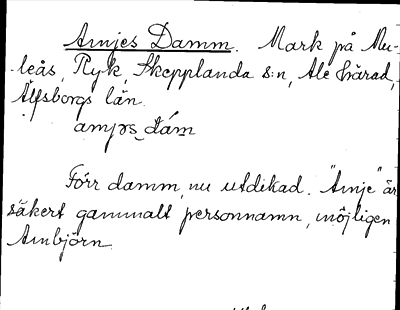 Amjes Damm. Mark på Mu-
leås, Ryk, Skepplanda s:n, Ale härad,
Älfsborgs län.
amjəs dám
Förr damm, nu utdikad. "Amje" är
säkert gammalt personnamn, möjligen
Arnbjörn.